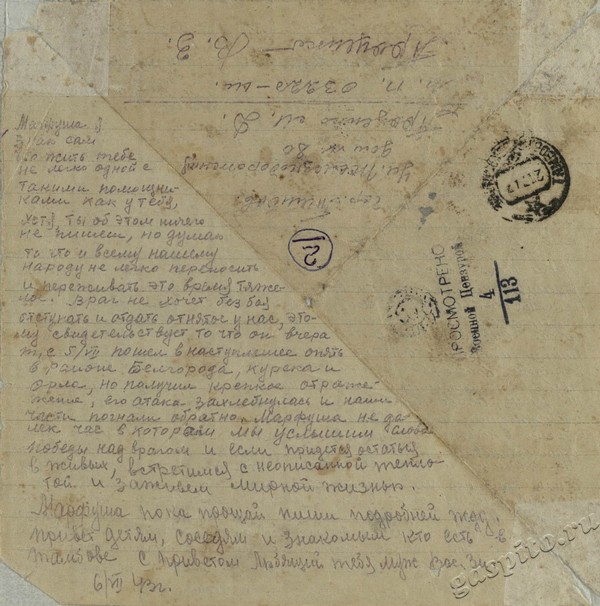 Марфуша я
знаю сам
что жить тебе
не легко одной с
такими помощни-
ками как у тебя,
хотя ты об этом ничего
не пишеш, но думаю
то что и всему нашему
народу не легко переносить
и переживать это время тяже-
лое. Враг не хочет без боя
отступать и отдать отнятое у нас, это-
му свидетельствует то что он вчера
т, е 5/VII пошел в наступление опять
в районе Белгорода, курска и
орла, но получил крепкое отраже-
жение, его атака захлебнулась и наши
части погнали обратно. Марфуша не да-
лек час в котором мы услышим слова
победы над врагом и если придется остаться
в живых, встретимся с неописанной тепло-
той и заживем мирной жизнью.
Марфуша пока прощай пиши подробней жду.
привет детям, соседям и знакомым кто есть в
Тамбове с приветом любящий тебя муж Вас. Зи
6/VII 43г.
гор. Тамбов
дом № 80
Проценко М. Д.
п. п. 03220-ы.
Проценко В. З.
2
ПРОСМОТРЕНО
Военной Цензурой
4
113
gaspito.ru